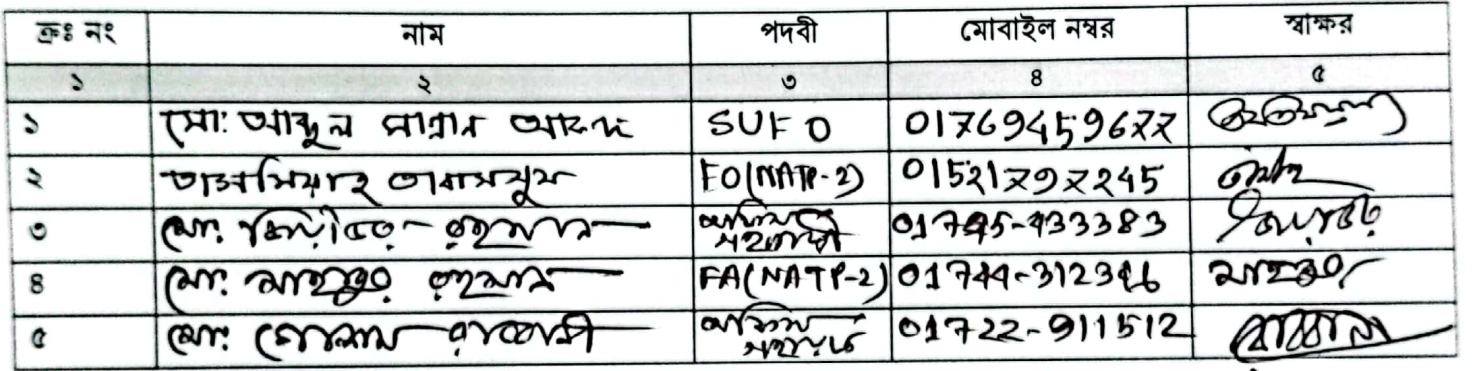 ক্রঃ নং নাম পদবী মোবাইল নম্বর স্বাক্ষর
১ ২ ৩ ৪ ৫
১ মো: আব্দুল মান্নান আহমদ SUFO 01769459677
২ তাবাসসুম FO(NATP-2) 01521797245
৩ মো: রহমান অফিস সহকারী 01745-433383
৪ মো: মাহবুবুর রহমান FA(NATP-2) 01744-312346 মাহবুব
৫ মো: গোলাম রাব্বানী অফিস সহায়ক 01722-911512 রাব্বানী